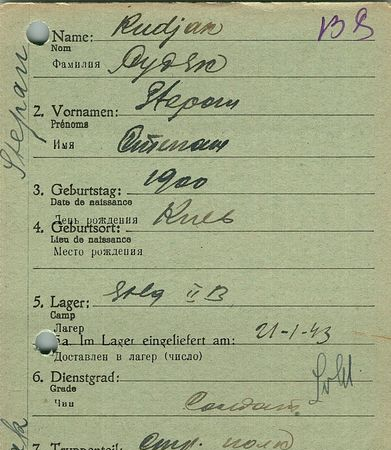 BS
Name: Rudjak
Nom
Фамилия Рудяк
2. Vornamen: Stepan
Prénoms
Имя Степан
Stepan
3. Geburtstag: 1900
Date de naissance
День рождения
4. Geburtsort: Киев
Lieu de naissance
Место рождения
5. Lager: Stlg II B
Camp
Лагер
5a. Im Lager eingeliefert am: 21-1-43
Доставлен в лагер (число)
6. Dienstgrad:
Grade
Чин Солдат
7. Truppenteil: Стр. полк